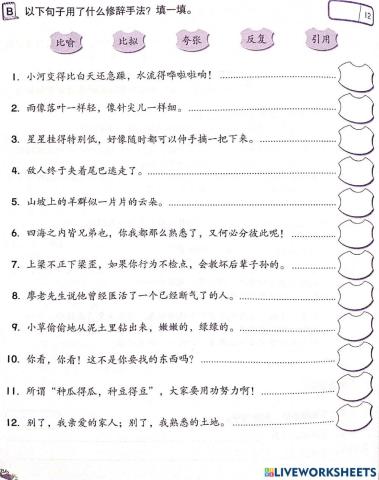 B 以下句子用了什么修辞手法？填一填。
12
比喻 比拟 夸张 反复 引用
1. 小河变得比白天还急躁，水流得哗啦啦响！
2. 雨像落叶一样轻，像针尖儿一样细。
3. 星星挂得特别低，好像随时都可以伸手摘一把下来。
4. 敌人终于夹着尾巴逃走了。
5. 山坡上的羊群似一片片的云朵。
6. 四海之内皆兄弟也，你我都那么熟悉了，又何必分彼此呢！
7. 上梁不正下梁歪，如果你行为不检点，会教坏后辈子孙的。
8. 廖老先生说他曾经医活了一个已经断气了的人。
9. 小草偷偷地从泥土里钻出来，嫩嫩的，绿绿的。
10. 你看，你看！这不是你要找的东西吗？
11. 所谓“种瓜得瓜，种豆得豆”，大家要用功努力啊！
12. 别了，我亲爱的家人；别了，我熟悉的土地。
LIVEWORKSHEETS